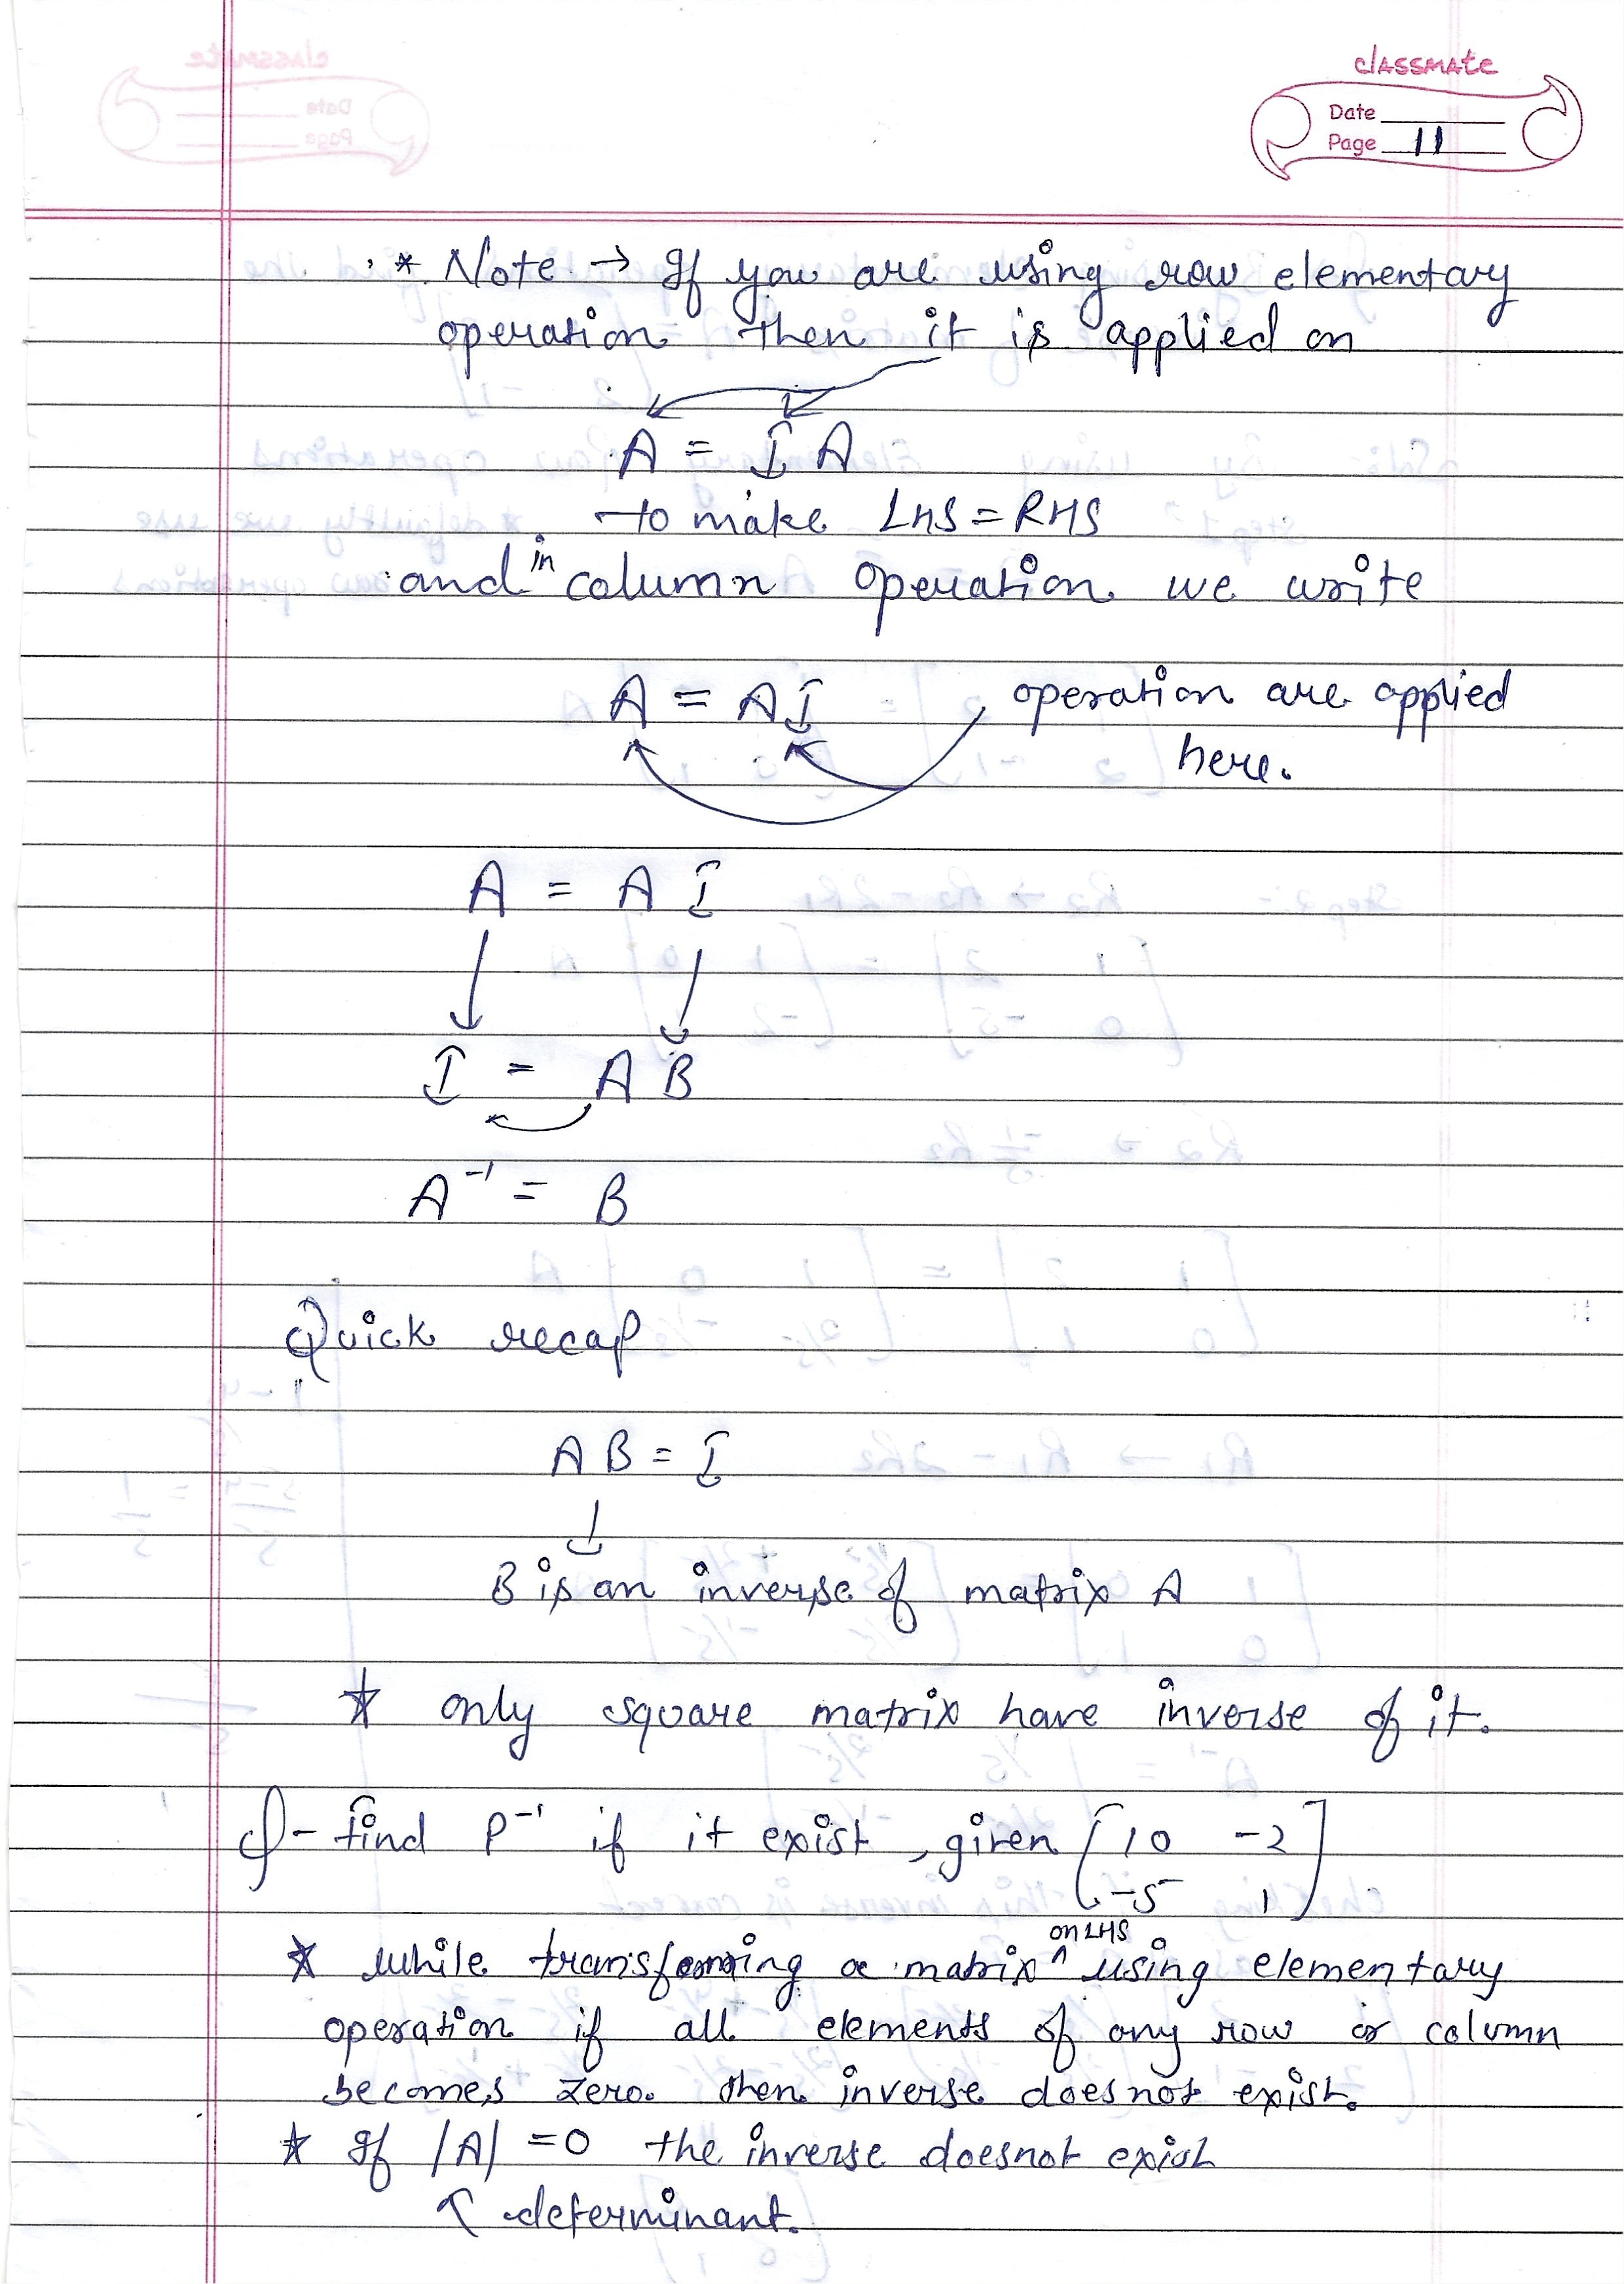 classmate
Date
Page 11
* Note → If you are using row elementary
operation then it is applied on
A = I A
to make LHS = RHS
and in column operation we write
A = A I operation are applied
here.
A = A I
I = A B
A⁻¹ = B
Quick recap
A B = I
B is an inverse of matrix A
* only square matrix have inverse of it.
Q- find P⁻¹ if it exist, given [10 -2
-5 1]
on LHS
* While transforming a matrix ^ using elementary
operation if all elements of any row or column
becomes zero. then inverse does not exist.
* If |A| = 0 the inverse doesnot exist
↖ determinant.